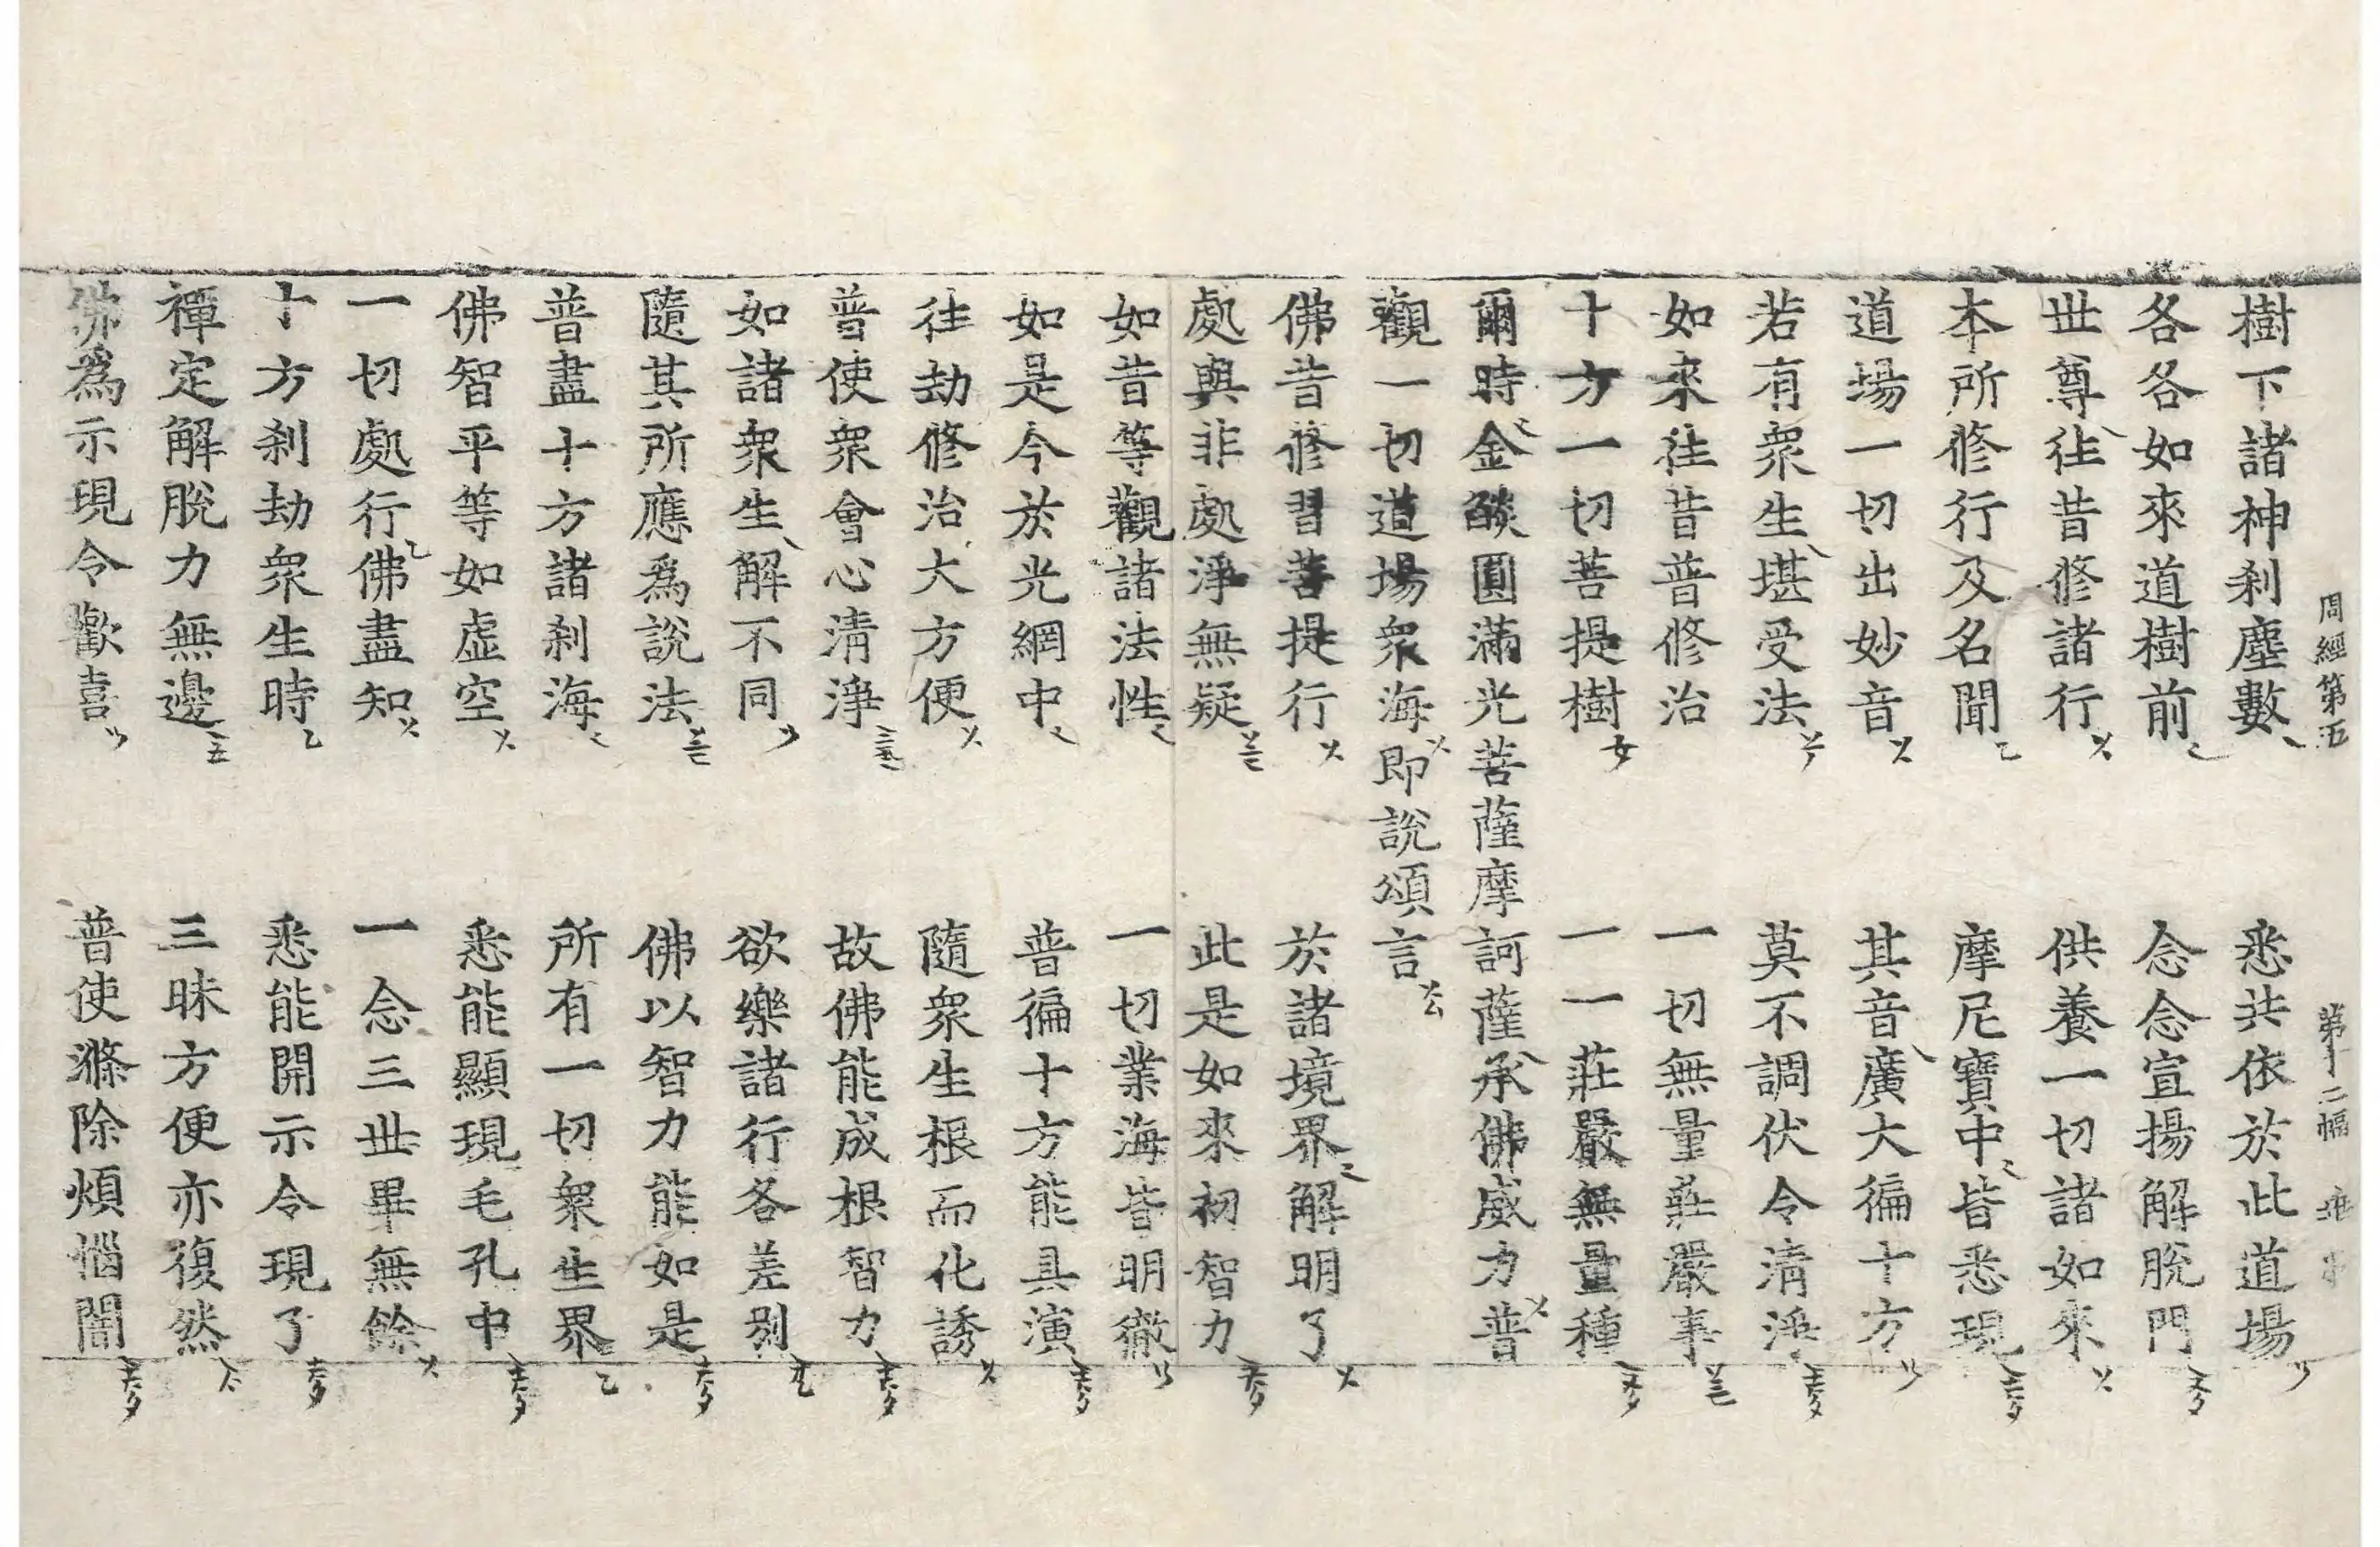 周經第五 第十二幅
樹下諸神刹塵數 悉共依於此道場
各各如來道樹前 念念宣揚解脫門
世尊徃昔修諸行 供養一切諸如來
本所修行及名聞 摩尼寶中皆悉現
道場一切出妙音 其音廣大徧十方
若有衆生堪受法 莫不調伏令清淨
如來徃昔普修治 一切無量莊嚴事
十方一切菩提樹 一一莊嚴無量種
爾時金燄圓滿光菩薩摩訶薩承佛威力普
觀一切道場衆海即說頌言
佛昔修習菩提行 於諸境界解明了
處與非處淨無疑 此是如來初智力
如昔等觀諸法性 一切業海皆明徹
如是今於光網中 普徧十方能具演
徃劫修治大方便 隨衆生根而化誘
普使衆會心清淨 故佛能成根智力
如諸衆生解不同 欲樂諸行各差別
隨其所應爲說法 佛以智力能如是
普盡十方諸刹海 所有一切衆生界
佛智平等如虛空 悉能顯現毛孔中
一切處行佛盡知 一念三世畢無餘
十方刹劫衆生時 悉能開示令現了
禪定解脫力無邊 三昧方便亦復然
佛爲示現令歡喜 普使滌除煩惱闇